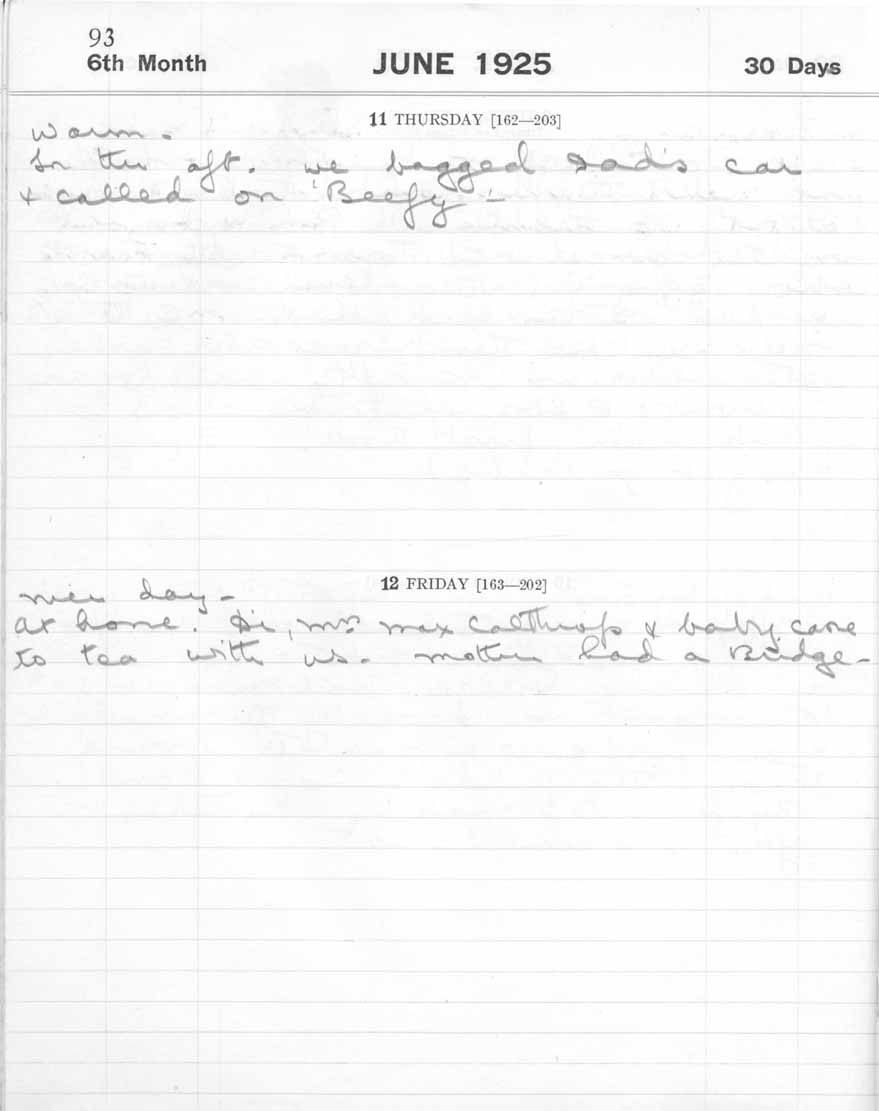 93
6th Month JUNE 1925 30 Days
11 THURSDAY [162—203]
Warm.
In the aft. we bagged Dad's car
& called on 'Beefy' -
12 FRIDAY [163—202]
Nice day -
At home. Di, Mrs Max Calthrop & baby came
to tea with us. Mother had a Bridge -